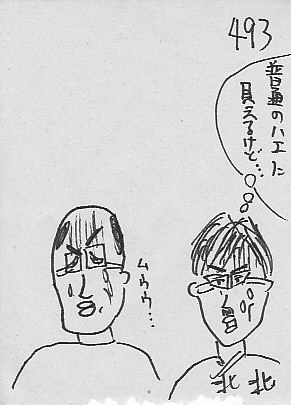 493
普通のハエに
見えるけど…
ムゥゥ…
北 北